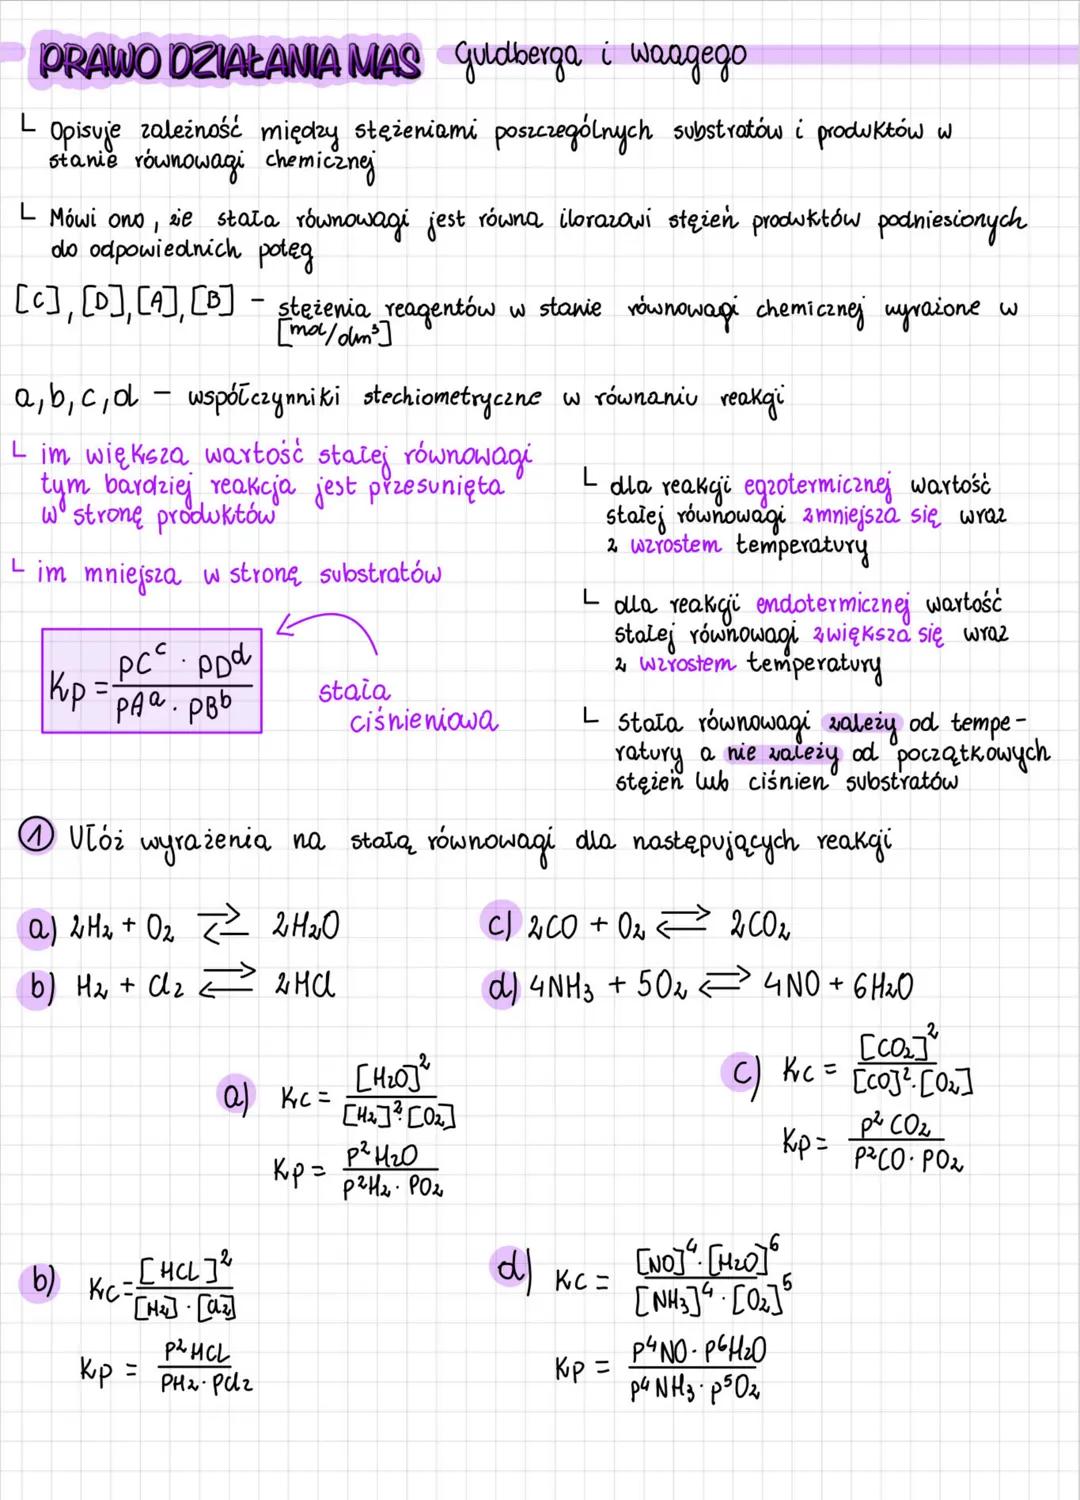 PRAWO DZIAŁANIA MAS Guldberga i Waagego
└ Opisuje zależność między stężeniami poszczególnych substratów i produktów w
stanie równowagi chemicznej
└ Mówi ono, że stała równowagi jest równa ilorazowi stężeń produktów podniesionych
do odpowiednich potęg
[C], [D], [A], [B] - stężenia reagentów w stanie równowagi chemicznej wyrażone w
[mol/dm³]
a, b, c, d - współczynniki stechiometryczne w równaniu reakcji
└ im większa wartość stałej równowagi
tym bardziej reakcja jest przesunięta
w stronę produktów
└ im mniejsza w stronę substratów
Kp = pC^c · pD^d / pA^a · pB^b
stała
ciśnieniowa
└ dla reakcji egzotermicznej wartość
stałej równowagi zmniejsza się wraz
z wzrostem temperatury
└ dla reakcji endotermicznej wartość
stałej równowagi zwiększa się wraz
z wzrostem temperatury
└ Stała równowagi zależy od tempe-
ratury a nie zależy od początkowych
stężeń lub ciśnień substratów
① Ułóż wyrażenia na stałą równowagi dla następujących reakcji
a) 2H₂ + O₂ ⇄ 2H₂O
b) H₂ + Cl₂ ⇄ 2HCl
c) 2CO + O₂ ⇄ 2CO₂
d) 4NH₃ + 5O₂ ⇄ 4NO + 6H₂O
a) Kc = [H₂O]² / [H₂]²·[O₂]
Kp = p²H₂O / p²H₂ · pO₂
c) Kc = [CO₂]² / [CO]²·[O₂]
Kp = p²CO₂ / p²CO · pO₂
b) Kc = [HCL]² / [H₂] · [Cl₂]
Kp = p²HCL / pH₂ · pCl₂
d) Kc = [NO]⁴ · [H₂O]⁶ / [NH₃]⁴ · [O₂]⁵
Kp = p⁴NO · p⁶H₂O / p⁴NH₃ · p⁵O₂